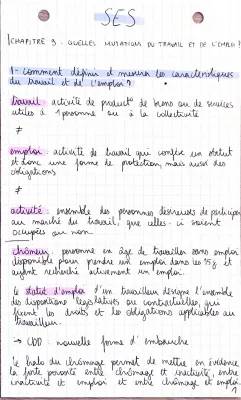 SES
CHAPITRE 9 : QUELLES MUTATIONS DU TRAVAIL ET DE L'EMPLOI ?
1 - Comment définir et mesurer les caractéristiques
du travail et de l'emploi ?
travail : activité de product° de biens ou de services
utiles à 1 personne ou à la collectivité
≠
emploi : activité de travail qui confère un statut
et donc une forme de protection, mais aussi des
obligations
≠
activité : ensemble des personnes désireuses de participer
au marché du travail, que celles-ci soient
occupées ou non.
chômeur : personne en âge de travailler sans emploi
disponible pour prendre un emploi dans les 15j et
ayant recherché activement un emploi.
le statut d'emploi d'un travailleur désigne l'ensemble
des dispositions législatives ou contractuelles, qui
fixent les droits et les obligations applicables au
travailleur.
→ CDD : nouvelle forme d'embauche
le halo du chômage permet de mettre en évidence
la forte porosité entre chômage et inactivité, entre
inactivité et emploi et entre chômage et emploi
1